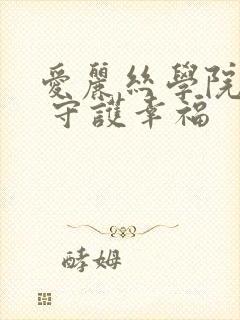 愛麗絲學院
守護幸福
酵姆